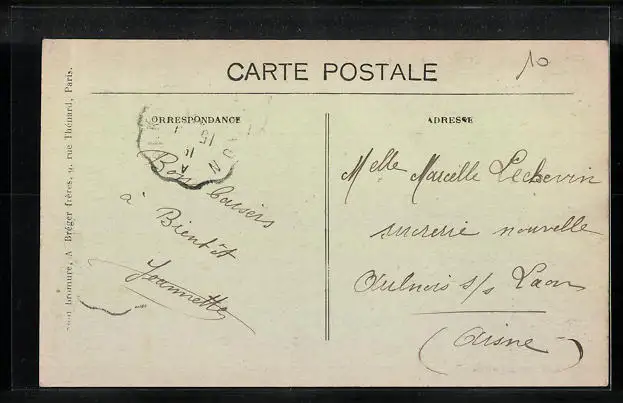 CARTE POSTALE
10
CORRESPONDANCE
ADRESSE
Bons baisers
à Bientôt
Jeannette
Melle Marcelle Lechevin
sucrerie nouvelle
Aulnois s/s Laon
(Aisne)
A Bréger frères, 9, rue Thénard, Paris.